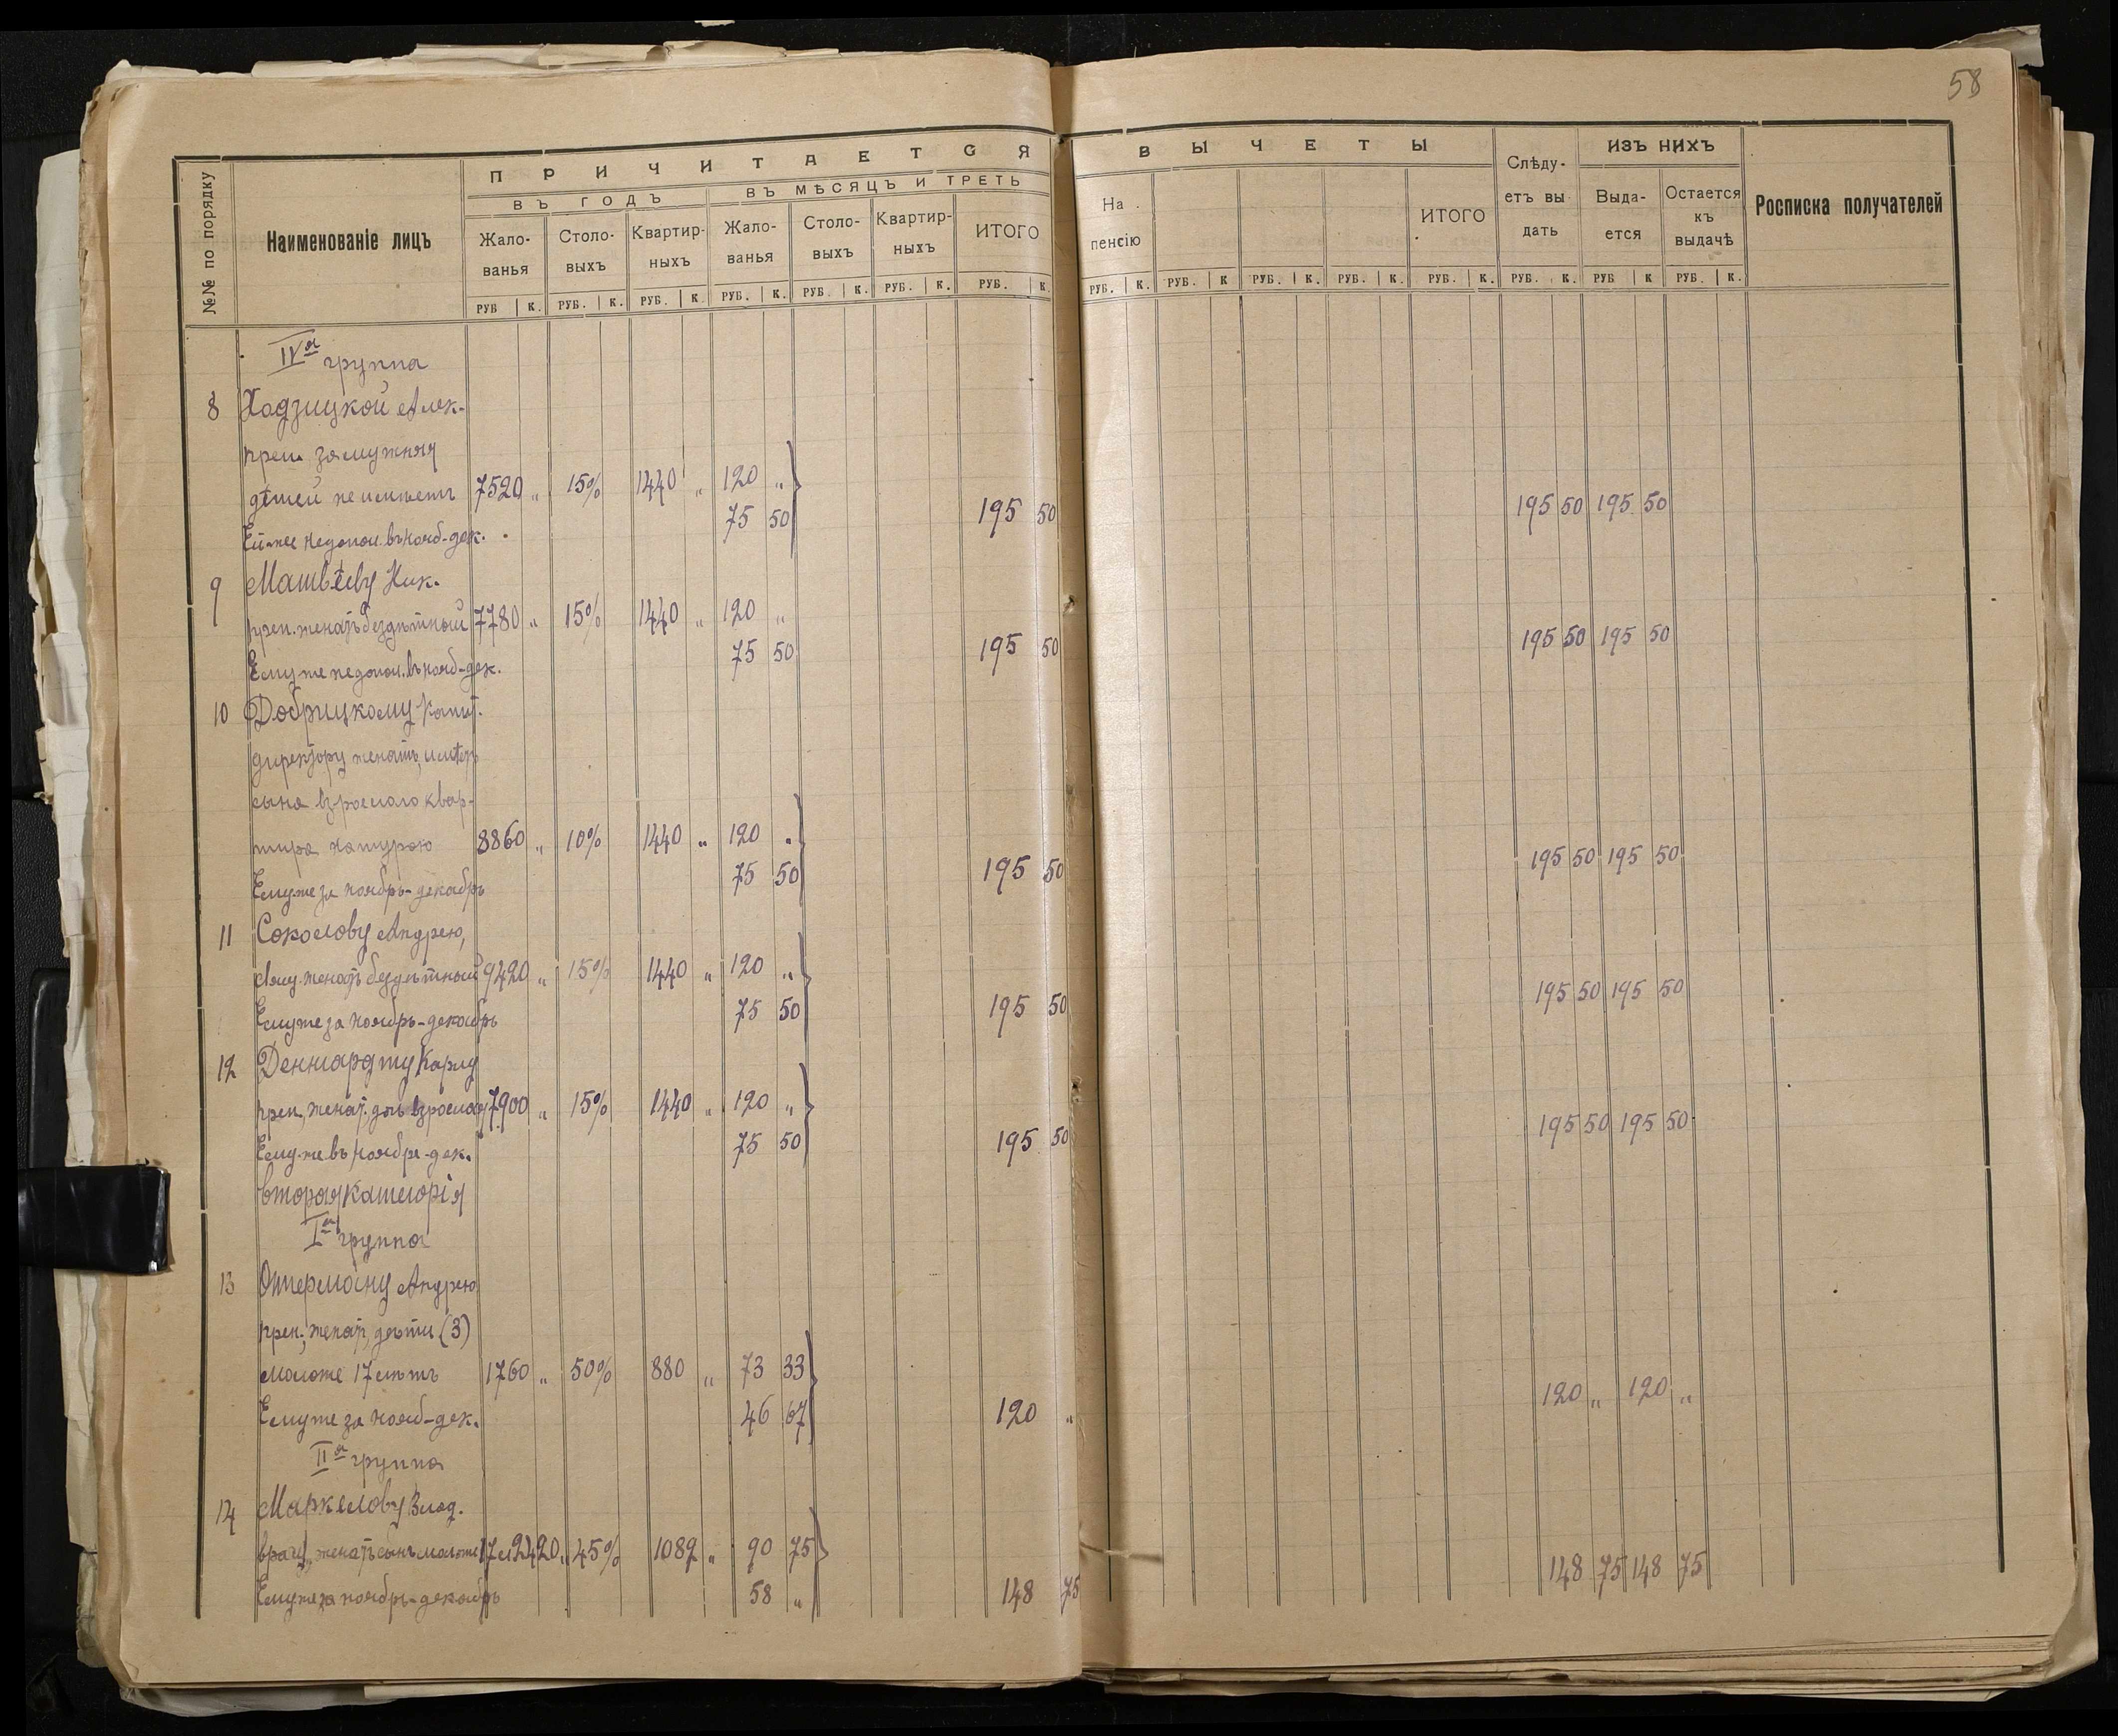 58
П Р И Ч И Т А Е Т С Я
В Ы Ч Е Т Ы
ИЗЪ НИХЪ
№№ по порядку
Наименованіе лицъ
ВЪ ГОДЪ
ВЪ МѢСЯЦЪ И ТРЕТЬ
Жало-ванья
Столо-выхъ
Квартир-ныхъ
Жало-ванья
Столо-выхъ
Квартир-ныхъ
ИТОГО
На пенсію
ИТОГО
Слѣду-етъ вы дать
Выда-ется
Остается къ выдачѣ
Росписка получателей
РУБ К. РУБ. К. РУБ. К. РУБ. К. РУБ. К. РУБ. К. РУБ. К. РУБ. К. РУБ. К РУБ. К. РУБ. К. РУБ. К. РУБ. К. РУБ К РУБ. К.
IVая группа
8 Ходзицкой Алек-
преп. замужняя
дѣтей не имѣетъ 7520 „ 15% 1440 „ 120 „
Ей-же недопол. въ нояб-дек. 75 50 195 50 195 50 195 50
9 Матвѣеву Ник.
преп. женатъ бездѣтный 7780 „ 15% 1440 „ 120 „
Ему же недопол. въ нояб-дек. 75 50 195 50 195 50 195 50
10 Добрицкому
директору женатъ, имѣетъ
сына взрослого квар-
тира натурою 8860 „ 10% 1440 „ 120 „
Ему же за ноябрь-декабрь 75 50 195 50 195 50 195 50
11 Соколову Андрею,
женатъ бездѣтный 9420 „ 15% 1440 „ 120 „
Ему же за ноябрь-декабрь 75 50 195 50 195 50 195 50
12 Карлу
преп, женат. дочь взрослая 7900 „ 15% 1440 „ 120 „
Ему-же въ ноябре-дек. 75 50 195 50 195 50 195 50
вторая категорія
Iая группа
13 Оттерману Андрею
преп., женат, дѣти (3)
моложе 17 лѣтъ 1760 „ 50% 880 „ 73 33
Ему же за нояб-дек. 46 67 120 „ 120 „ 120 „
IIая группа
14 Маркелову Влад.
врачу, женатъ сынъ моложе 17 л 2420 „ 45% 1089 „ 90 75
Ему же за ноябрь-декабрь 58 „ 148 75 148 75 148 75